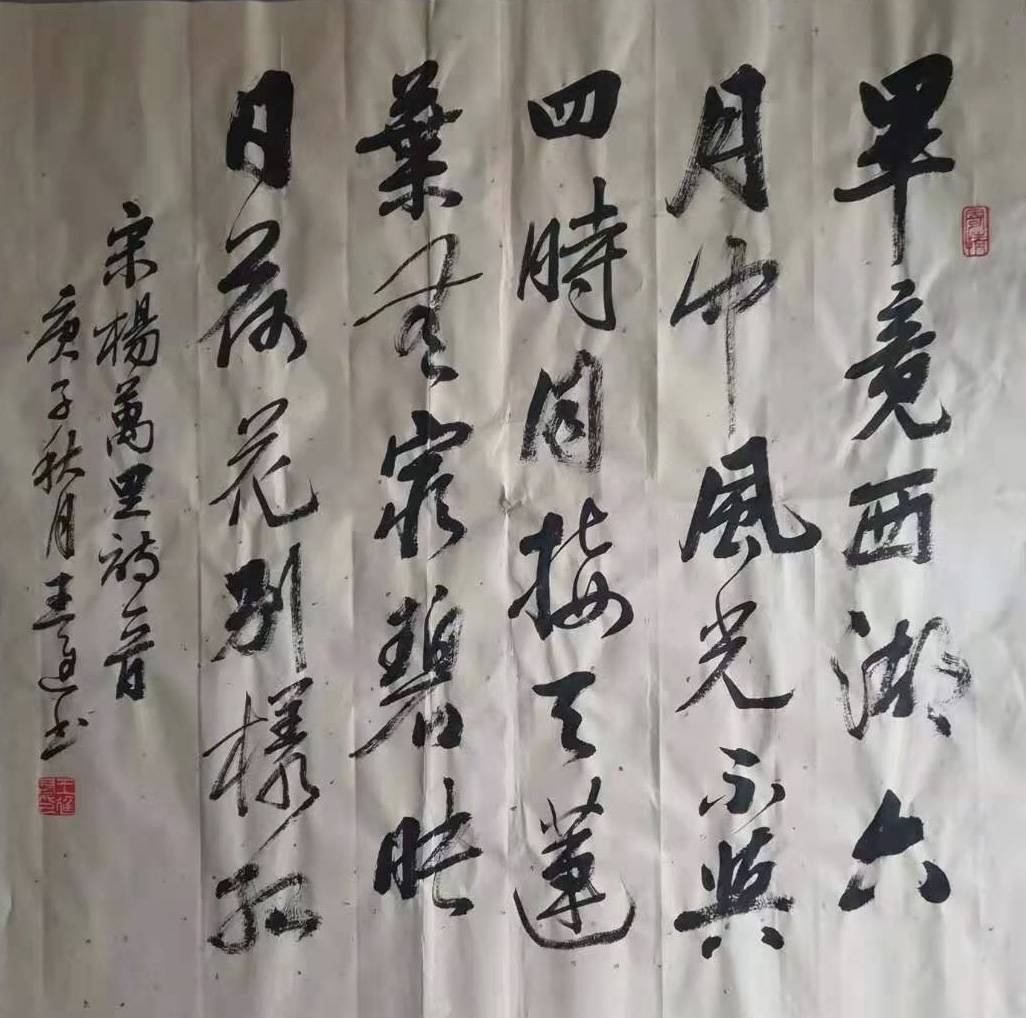 畢竟西湖六
月中風光不與
四時同接天蓮
葉無窮碧映
日荷花別樣紅
宋楊萬里詩一首
庚子秋月王书